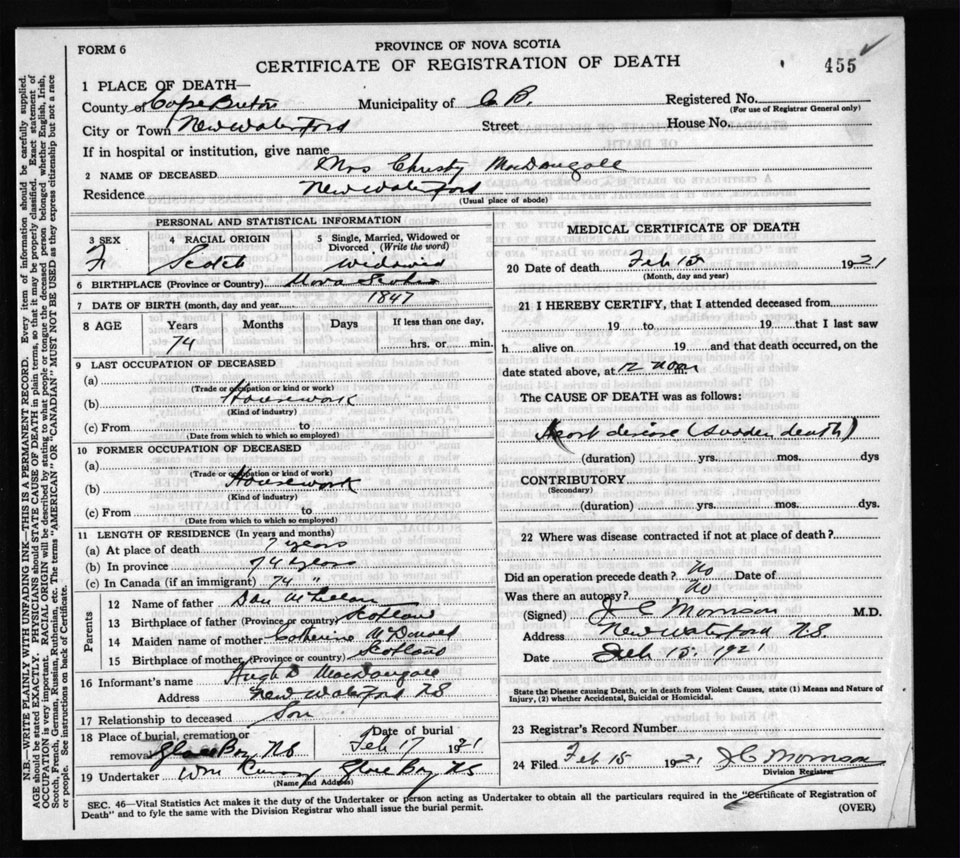 FORM 6
PROVINCE OF NOVA SCOTIA
CERTIFICATE OF REGISTRATION OF DEATH
455
1 PLACE OF DEATH—
County of Cape Breton Municipality of C B. Registered No.
(For use of Registrar General only)
City or Town New Waterford Street House No.
If in hospital or institution, give name
2 NAME OF DECEASED Mrs Christy MacDougall
Residence New Waterford
(Usual place of abode)
PERSONAL AND STATISTICAL INFORMATION
3 SEX 4 RACIAL ORIGIN 5 Single, Married, Widowed or
Divorced (Write the word)
F Scotch Widowed
6 BIRTHPLACE (Province or Country) Nova Scotia
7 DATE OF BIRTH (month, day and year) 1847
8 AGE Years Months Days If less than one day,
74 hrs. or min.
9 LAST OCCUPATION OF DECEASED
(a)
(Trade or occupation or kind or work)
(b) Housework
(Kind of industry)
(c) From to
(Date from which to which so employed)
10 FORMER OCCUPATION OF DECEASED
(a)
(Trade or occupation or kind or work)
(b) Housework
(Kind of industry)
(c) From to
(Date from which to which so employed)
11 LENGTH OF RESIDENCE (In years and months)
(a) At place of death 7 years
(b) In province 74 years
(c) In Canada (if an immigrant) 74 "
Parents
12 Name of father Dan
13 Birthplace of father (Province or country) Scotland
14 Maiden name of mother Catherine McDonald
15 Birthplace of mother (Province or country) Scotland
16 Informant's name Hugh D MacDougall
Address New Waterford NS
17 Relationship to deceased Son
18 Place of burial, cremation or Date of burial
removal Glace Bay NS Feb 17 1921
19 Undertaker Wm Glace Bay NS
(Name and Address)
MEDICAL CERTIFICATE OF DEATH
20 Date of death Feb 15 1921
(Month, day and year)
21 I HEREBY CERTIFY, that I attended deceased from
19 to 19 that I last saw
h alive on 19 and that death occurred, on the
date stated above, at 12 noon m.
The CAUSE OF DEATH was as follows:
Heart disease (sudden death)
(duration) yrs. mos. dys
CONTRIBUTORY
(Secondary)
(duration) yrs. mos. dys.
22 Where was disease contracted if not at place of death?
Did an operation precede death? No Date of
Was there an autopsy? No
(Signed) J C Morrison M.D.
Address New Waterford N.S.
Date Feb 15. 1921
State the Disease causing Death, or in death from Violent Causes, state (1) Means and Nature of
Injury, (2) whether Accidental, Suicidal or Homicidal.
23 Registrar's Record Number
24 Filed Feb 15 1921 J C Morrison
Division Registrar
SEC. 46—Vital Statistics Act makes it the duty of the Undertaker or person acting as Undertaker to obtain all the particulars required in the "Certificate of Registration of
Death" and to fyle the same with the Division Registrar who shall issue the burial permit. (OVER)
N.B.—WRITE PLAINLY WITH UNFADING INK—THIS IS A PERMANENT RECORD. Every item of information should be carefully supplied.
AGE should be stated EXACTLY. PHYSICIANS should STATE CAUSE OF DEATH in plain terms, so that it may be properly classified. Exact statement of
OCCUPATION is very important. RACIAL ORIGIN will be described by stating to what people or tongue the deceased person belonged whether English, Irish,
Scotch, French, German, Russian, Ruthenian, etc. The terms "AMERICAN" or "CANADIAN" MUST NOT BE USED as they express citizenship but not a race
or people. See instructions on back of Certificate.